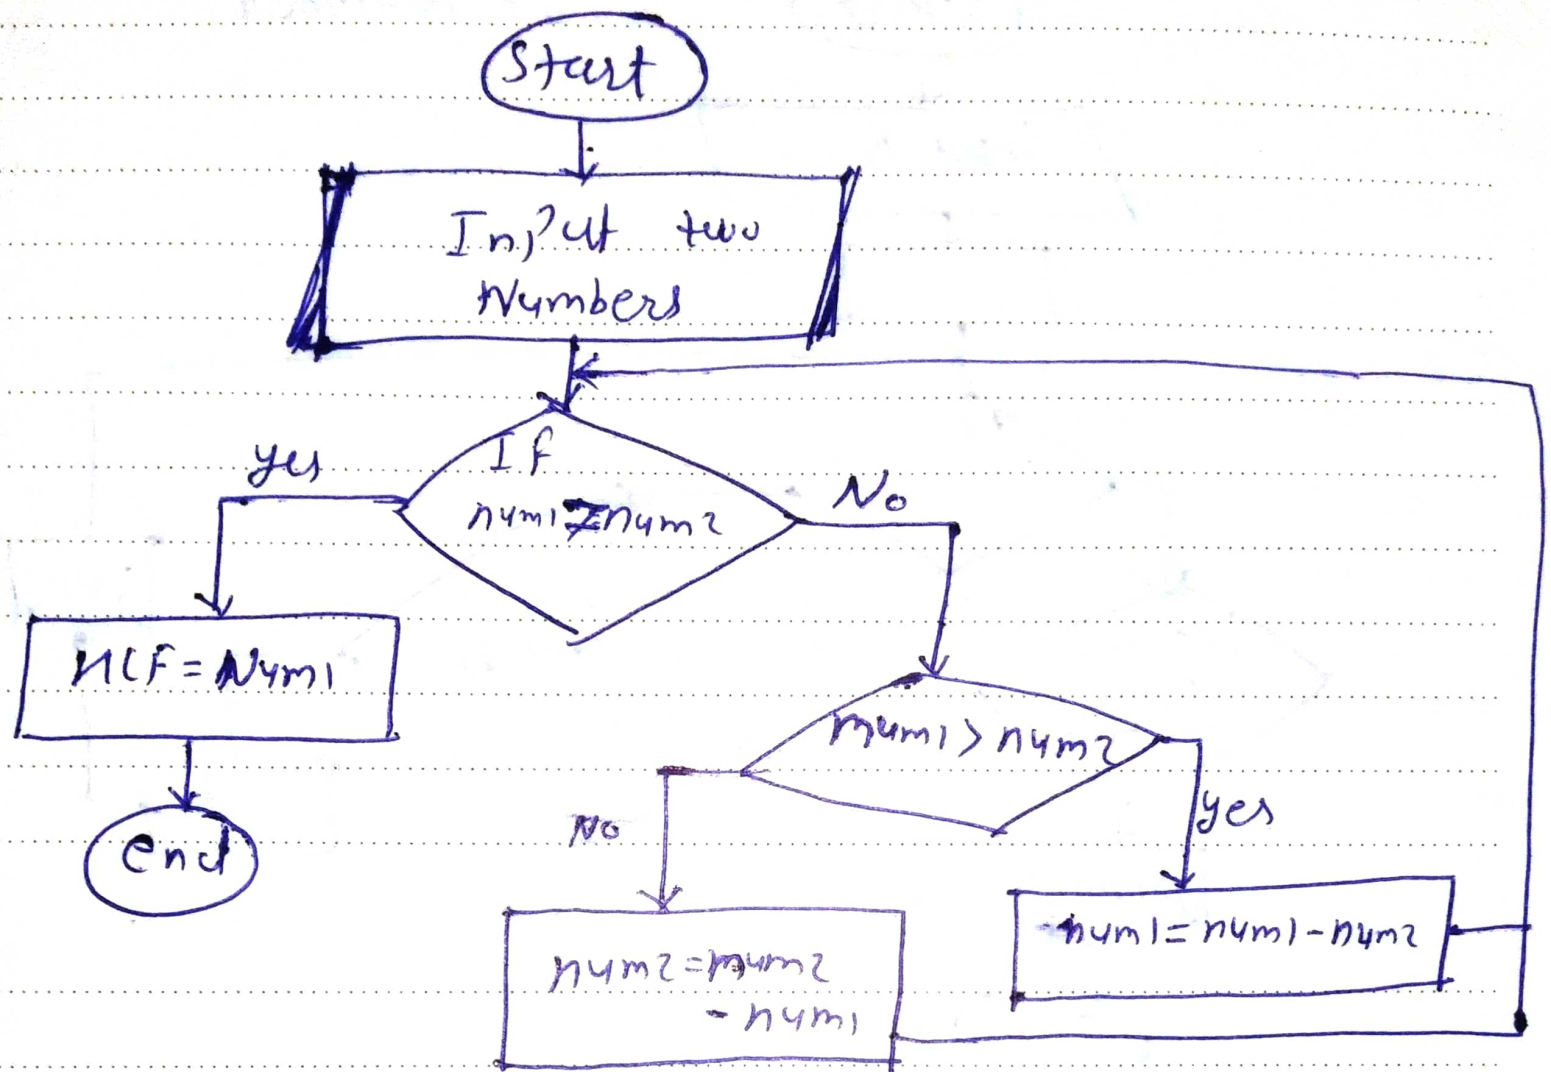 Start
Input two
Numbers
If
num1 ≠ num2
yes
No
HCF = Num1
end
num1 > num2
No
yes
num1 = num1 - num2
num2 = num2
- num1